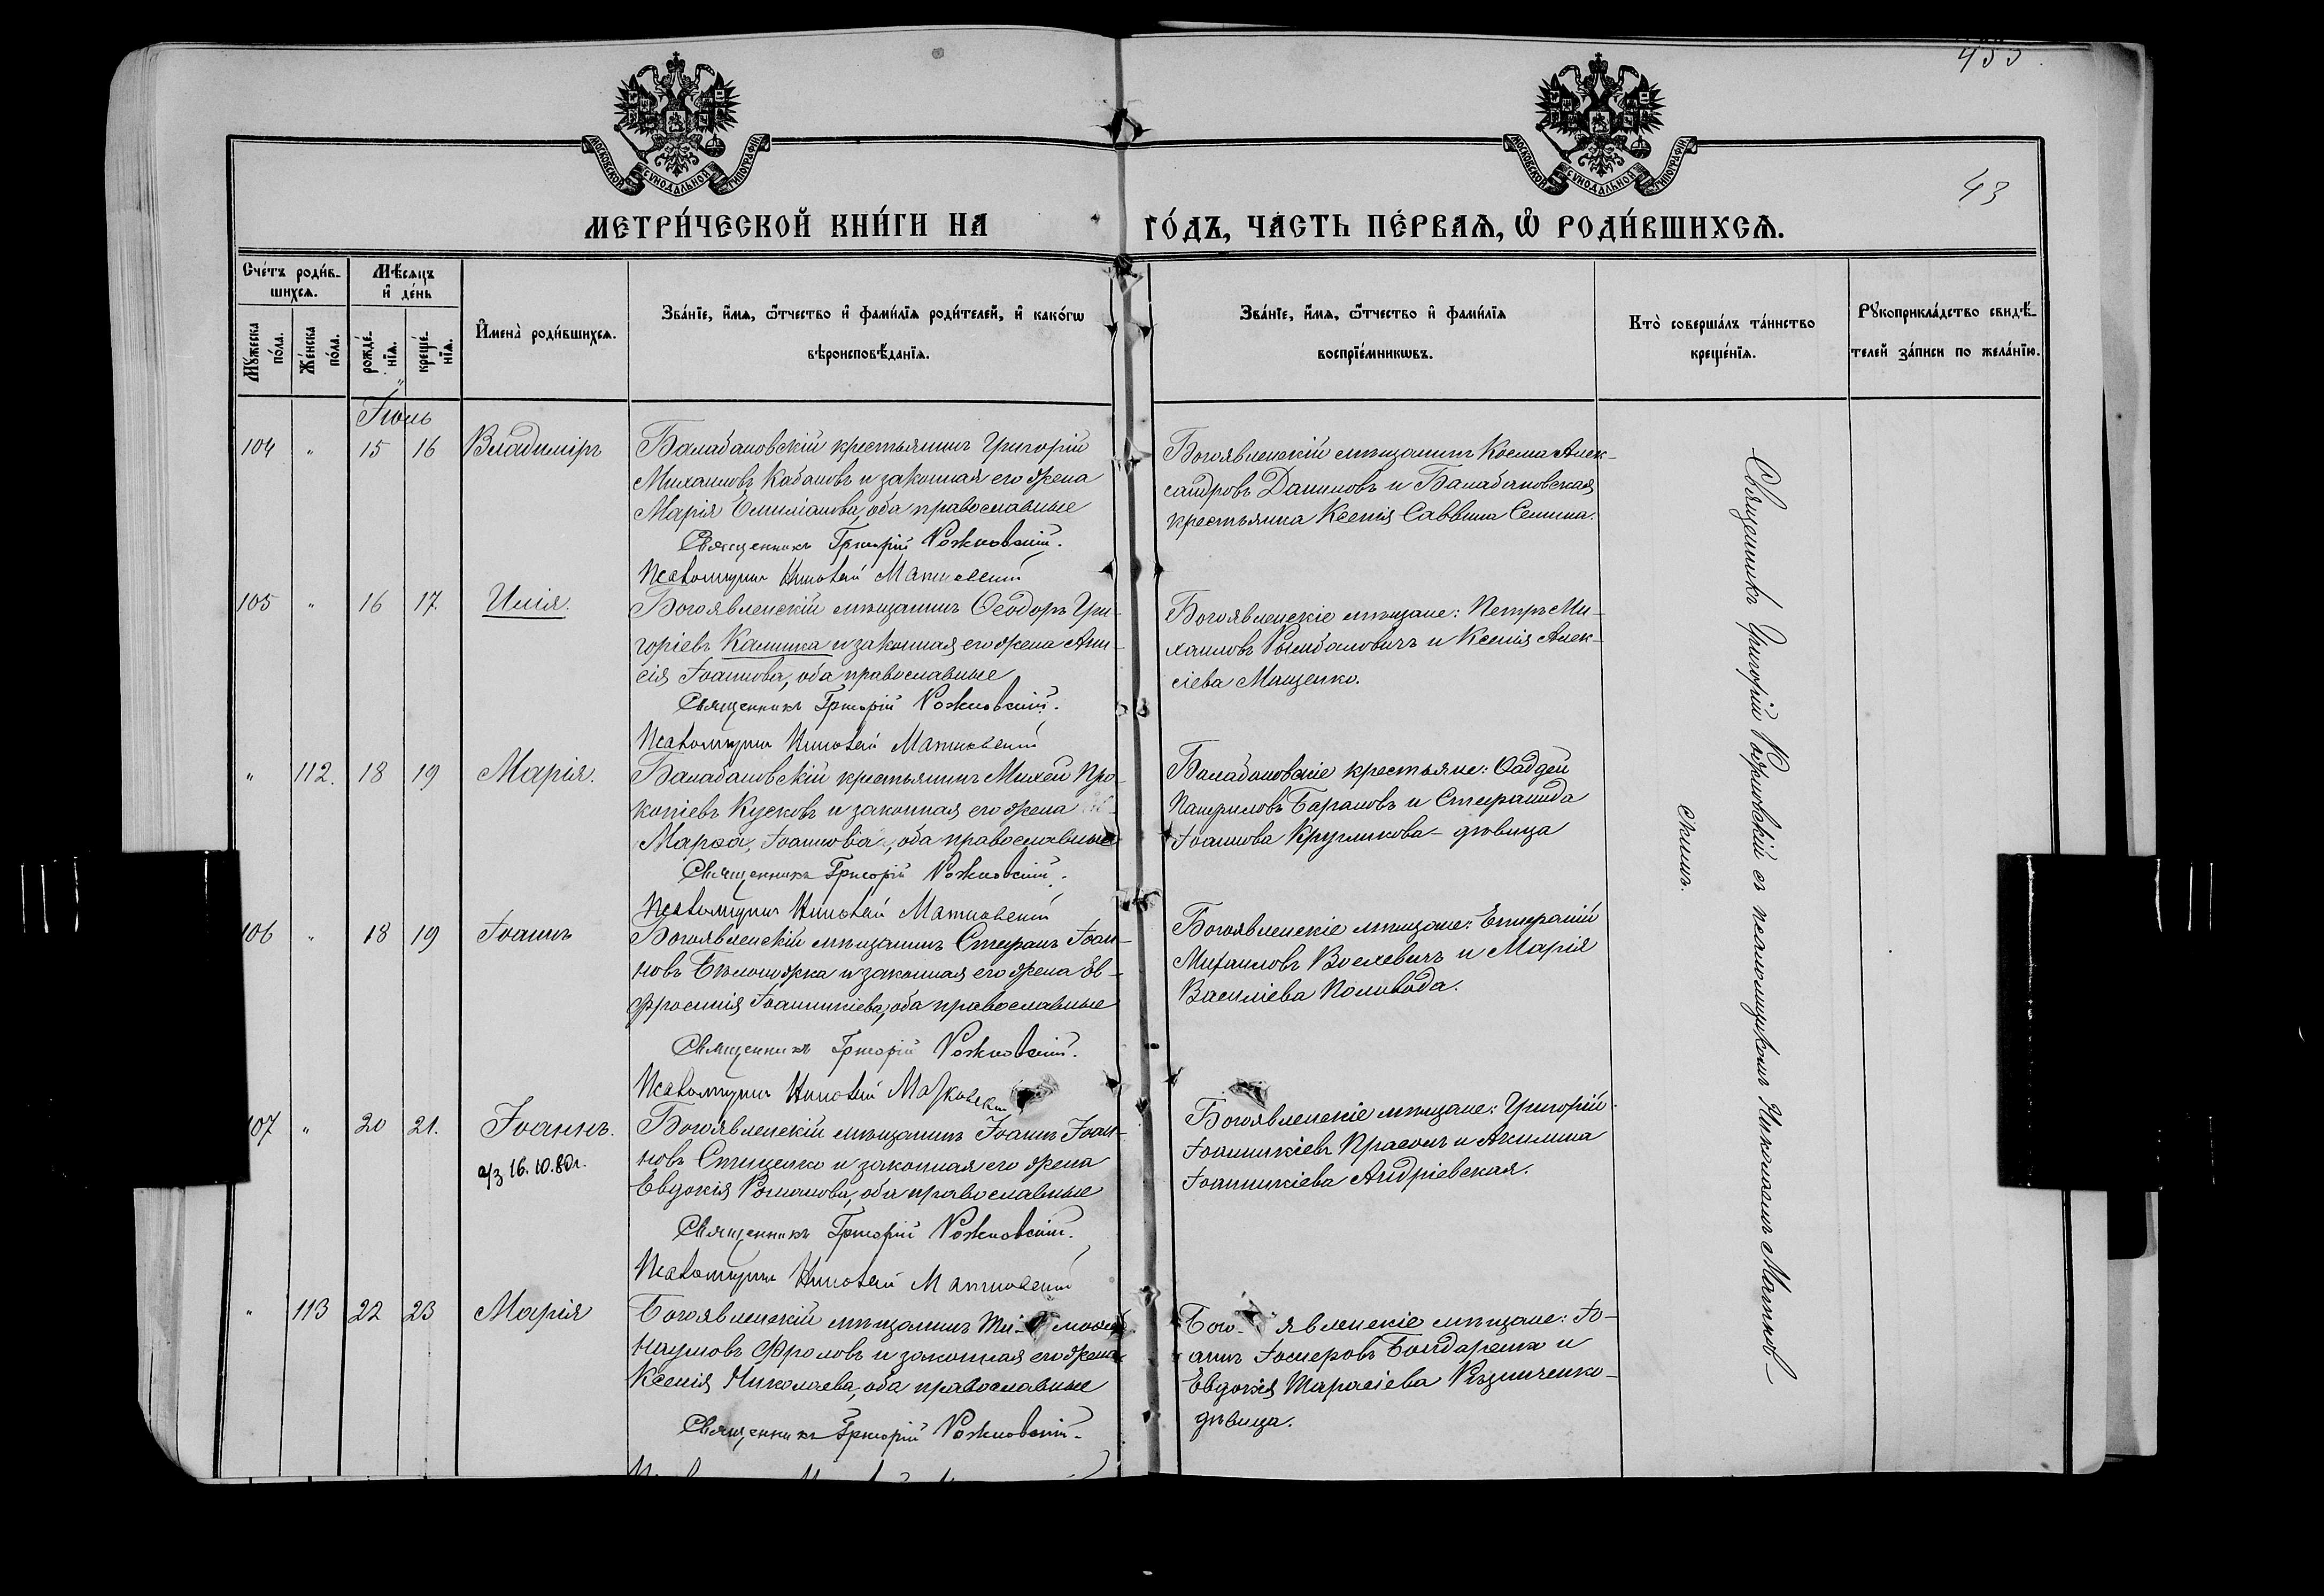 455
43
МОСКОВСКОЙ СѴНОДАЛЬНОЙ ТИПОГРАФІИ
МОСКОВСКОЙ СѴНОДАЛЬНОЙ ТИПОГРАФІИ
МЕТРИ́ЧЕСКОЙ КНИ́ГИ НА ГО́ДЪ, ЧА́СТЬ ПЕ́РВАѦ, Ѡ҆ РОДИ́ВШИХСѦ.
Сче́тъ роди́в-
шихсѧ.
Мꙋ́жеска по́ла.
Же́нска по́ла.
Мѣ́сѧцъ
и҆ де́нь
рожде́-
нїѧ.
креще́-
нїѧ.
И҆мена̀ роди́вшихсѧ.
Зва́нїе, и҆́мѧ, ѻ҆́тчество и҆ фами́лїѧ роди́телей, и҆ како́гѡ
вѣроисповѣ́данїѧ.
Зва́нїе, и҆́мѧ, ѻ҆́тчество и҆ фами́лїѧ
воспрїе́мникѡвъ.
Кто̀ соверша́лъ та́инство
креще́нїѧ.
Рꙋкоприкла́дство свидѣ́-
телей за́писи по жела́нїю.
Іюль
104 " 15 16 Владиміръ
Балабановскій крестьянинъ Григорій
Михаиловъ Кабановъ и законная его жена
Марія Емиліанова, оба православные
Священникъ Григорій Рожновскій.
Псаломщикъ Николай Матковскій
Богоявленскій мѣщанинъ Косма Алек-
сандровъ Даниловъ и Балабановская
крестьянка Ксенія Саввина Семина.
105 " 16 17 Илія.
Богоявленскій мѣщанинъ Ѳеодоръ Гри-
горіевъ Калинка и законная его жена Ани-
сія Іоаннова, оба православные
Священникъ Григорій Рожновскій.
Псаломщикъ Николай Матковскій
Богоявленскіе мѣщане: Петръ Ми-
хаиловъ и Ксенія Алек-
сіева Мащенко.
" 112. 18 19 Марія.
Балабановскій крестьянинъ Михей Про-
копіевъ Кусковъ и законная его жена
Марѳа, Іоаннова, оба православные
Священникъ Григорій Рожновскій.
Псаломщикъ Николай Матковскій
Балабановскіе крестьяне: Ѳаддей
Панфиловъ Барановъ и Стефанида
Іоаннова Кругликова - дѣвица
106 " 18 19 Іоаннъ
Богоявленскій мѣщанинъ Стефанъ Іоан-
новъ Бѣлоножка и законная его жена Ев-
фросинія Іоанникіева, оба православные
Священникъ Григорій Рожновскій.
Псаломщикъ Николай Матковскій
Богоявленскіе мѣщане: Епифаній
Михаиловъ и Марія
Василіева Поливода.
107 " 20 21. Іоаннъ.
а/з 16.10.80г.
Богоявленскій мѣщанинъ Іоаннъ Іоан-
новъ Стеценко и законная его жена
Евдокія Романова, оба православные
Священникъ Григорій Рожновскій.
Псаломщикъ Николай Матковскій
Богоявленскіе мѣщане: Григорій
Іоанникіевъ и Акилина
Іоанникіева Андріевская.
" 113 22 23 Марія
Богоявленскій мѣщанинъ Ти- моѳей
Наумовъ Фроловъ и законная его жена
Ксенія Николаева, оба православные
Священникъ Григорій Рожновскій.
Бого- явленскіе мѣщане: Іо-
аннъ Бондаренко и
Евдокія Тарасіева Рѣзниченко -
дѣвица.
Священникъ Григорій Рожновскій съ псаломщикомъ Николаемъ Матков-
скимъ.